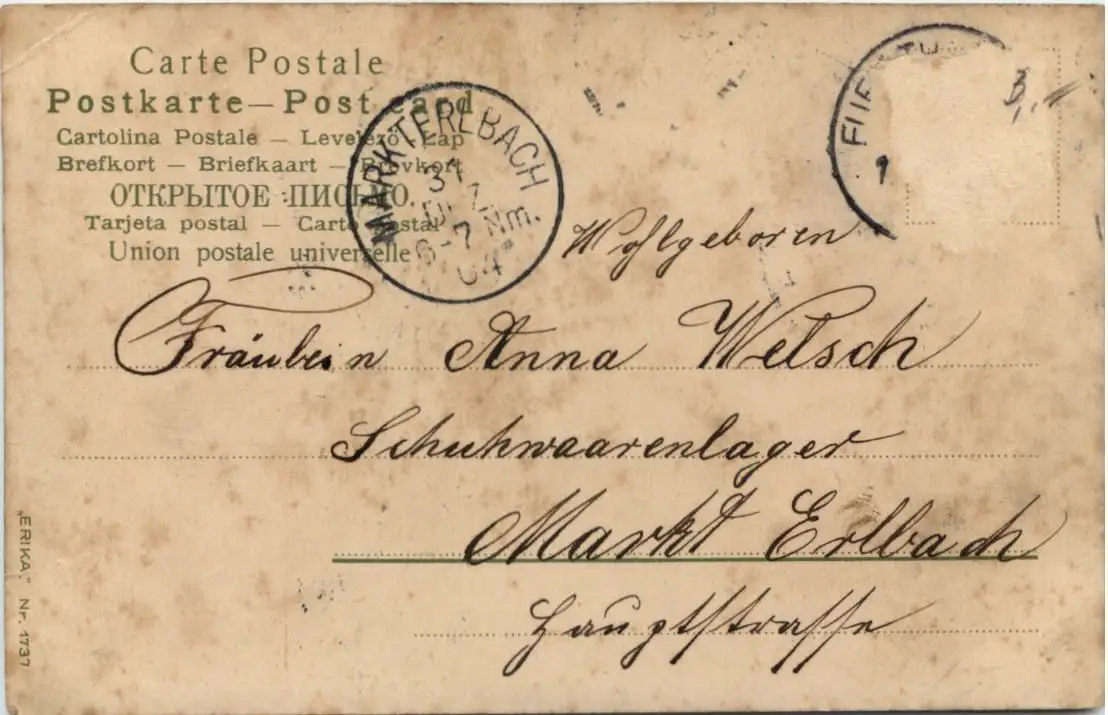 Carte Postale
Postkarte — Post card
Cartolina Postale — Levelező Lap
Brefkort — Briefkaart — Brevkort
ОТКРЫТОЕ ПИСЬМО.
Tarjeta postal — Carto postal
Union postale universelle
MARKTERLBACH
31
DEZ
6-7 Nm.
04
1
3,-
Wohlgeboren
Fräulein Anna Welsch
Schuhwaarenlager
Markt Erlbach
Hauptstrasse
„ERIKA“ Nr. 1737